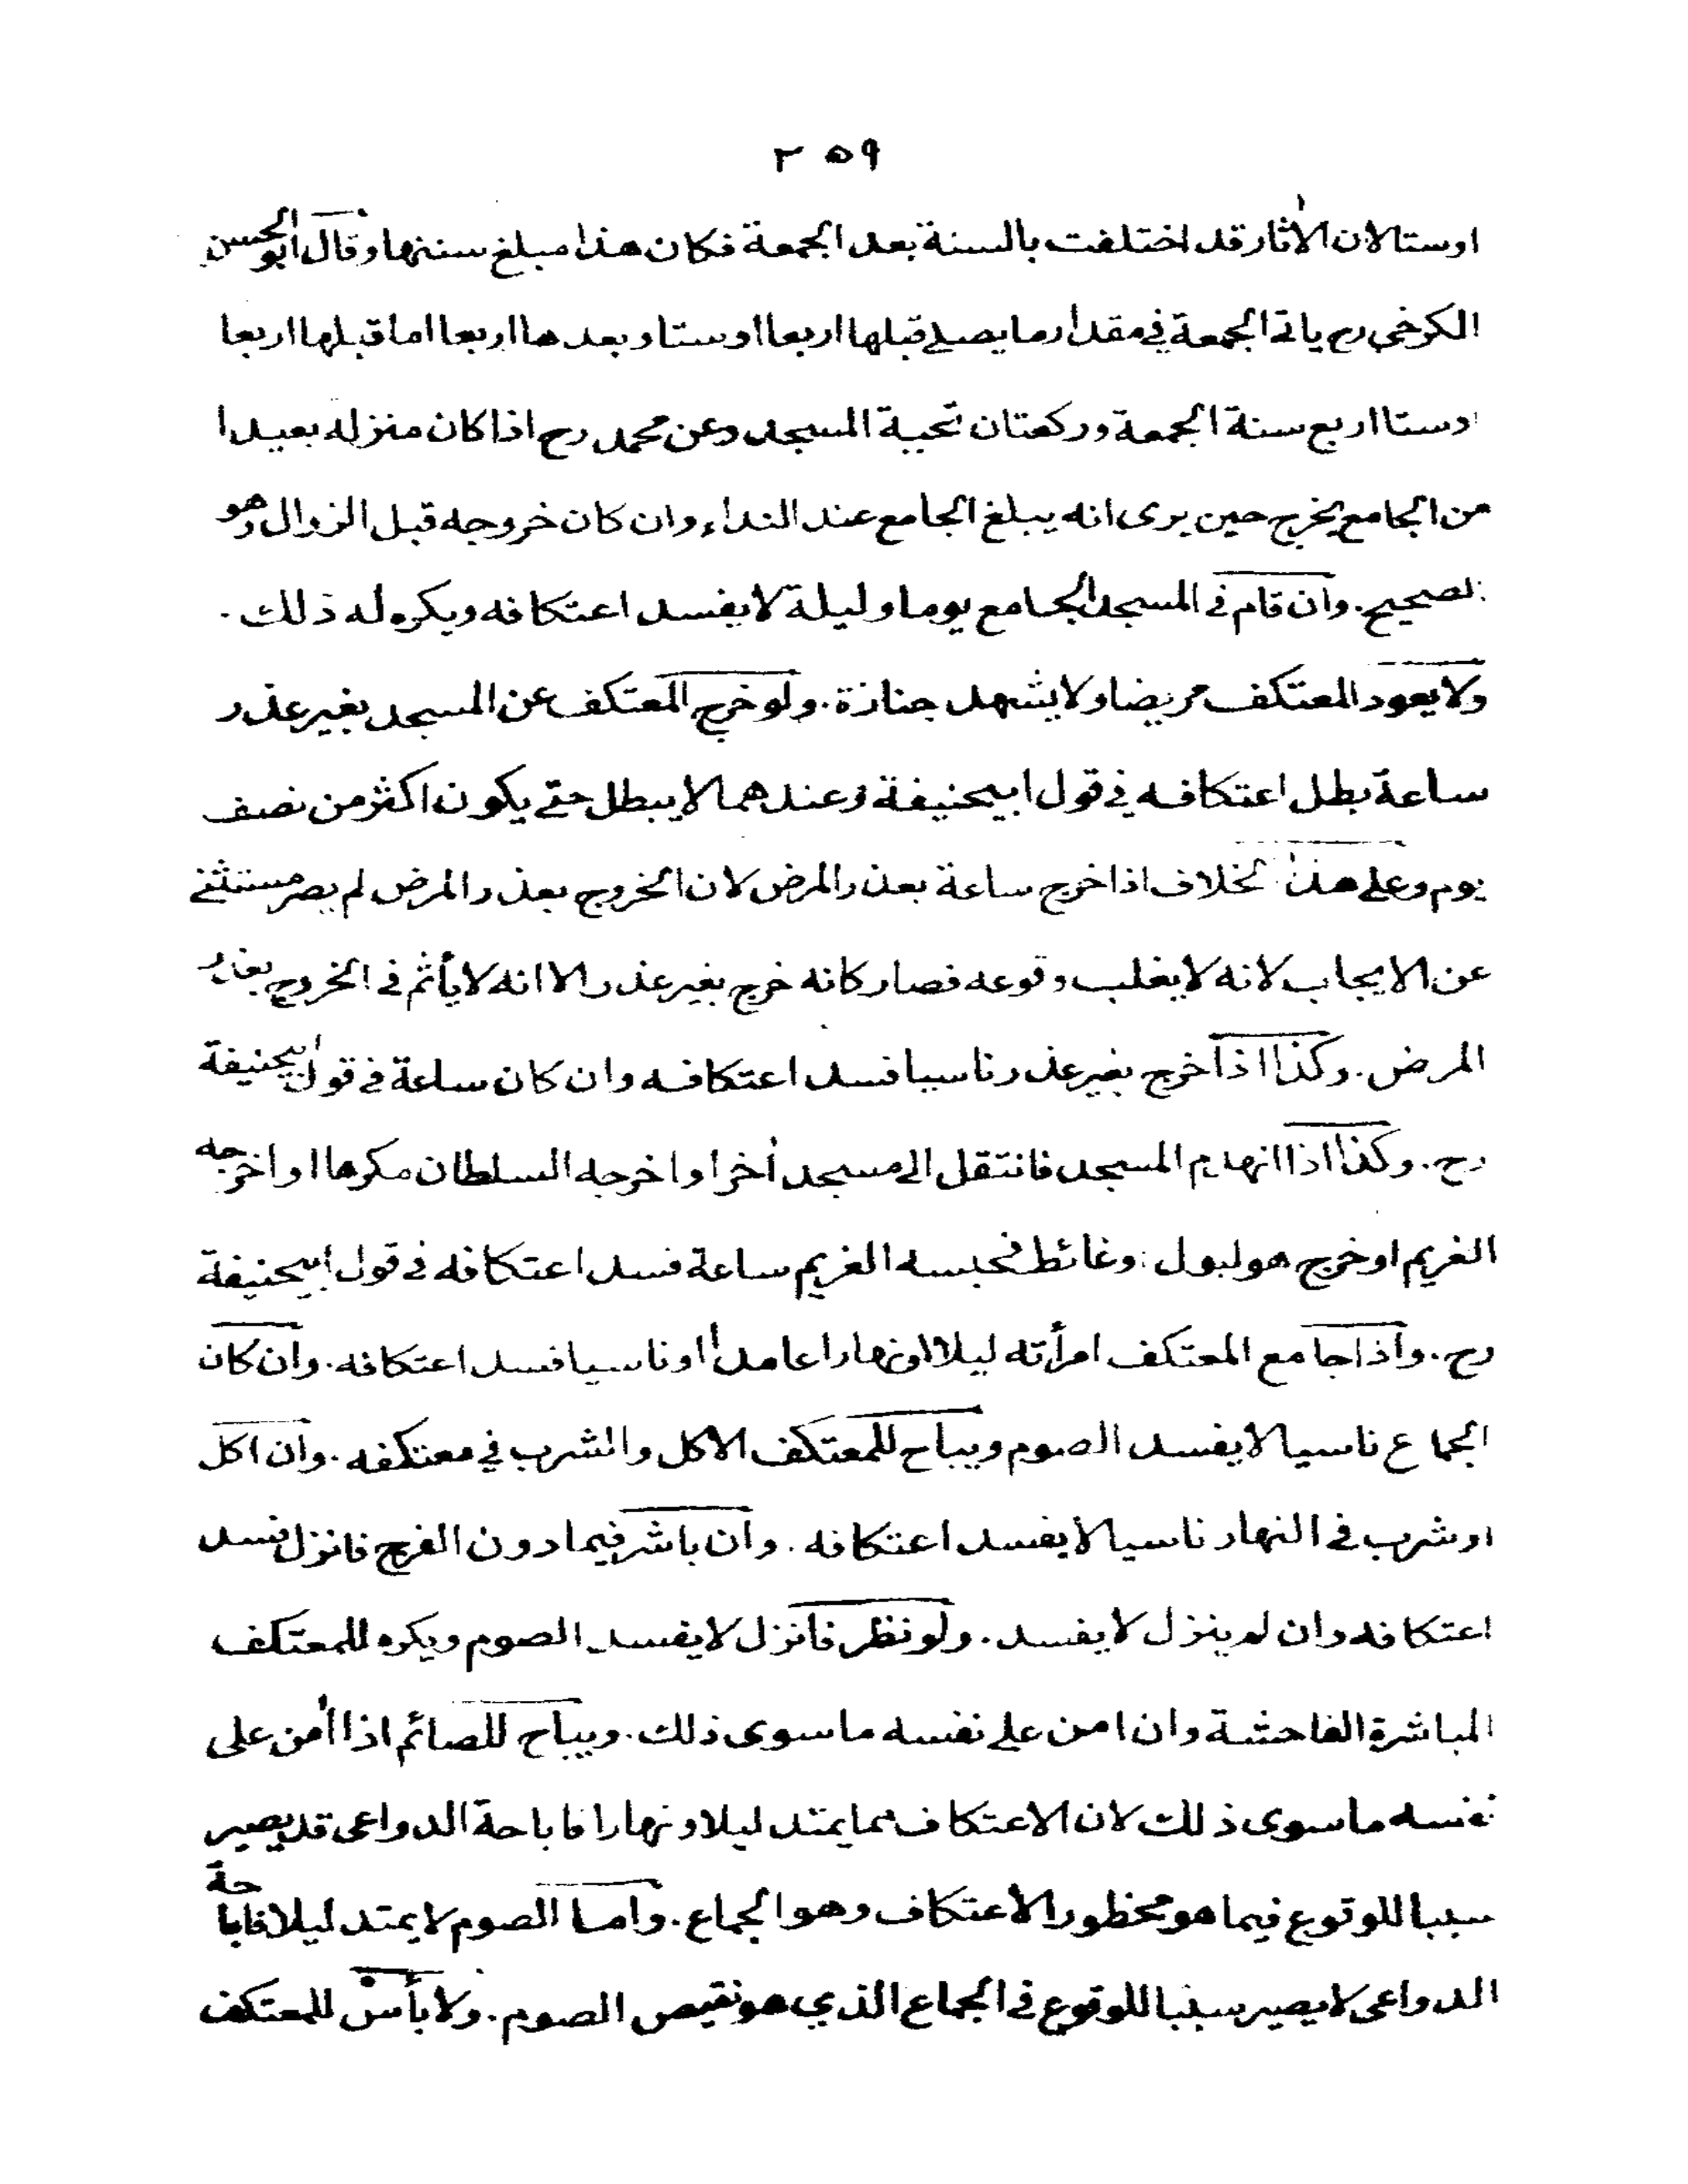 ٢٥٩
اوستالان الاٰثارقد اختلفت بالسنة بعد الجمعة فكان هذا مبلغ سنتها وقال ابوالحسن
الكرخى رح ياتى الجمعة في مقدار ما يصلي قبلها اربعا اوستا وبعدها اربعا اما قبلها اربعا
اوستا اربع سنة الجمعة وركعتان تحية المسجد وعن محمد رح اذا كان منزله بعيدا
من الجامع يخرج حين يرى انه يبلغ الجامع عند النداء وان كان خروجه قبل الزوال وهو
الصحيح. وان قام في المسجد الجامع يوما وليلة لا يفسد اعتكافه ويكره له ذلك.
ولا يعود المعتكف مريضا ولا يشهد جنازة. ولو خرج المعتكف عن المسجد بغير عذر
ساعة بطل اعتكافه في قول ابيحنيفة وعندهما لا يبطل حتي يكون اكثر من نصف
يوم وعلي هذا الخلاف اذا خرج ساعة بعذر المرض لان الخروج بعذر المرض لم يصر مستثنے
عن الايجاب لانه لا يغلب وقوعه فصار كانه خرج بغير عذر الا انه لا يأثم في الخروج بعذر
المرض. وكذا اذا خرج بغير عذر ناسيا فسد اعتكافه وان كان ساعة في قول ابيحنيفة
رح. وكذا اذا انهدم المسجد فانتقل الى مسجد اٰخر او اخرجه السلطان مكرها او اخرجه
الغريم او خرج هو لبول اوغائط فحبسه الغريم ساعة فسد اعتكافه في قول ابيحنيفة
رح. واذا جامع المعتكف امرأته ليلا اونهارا عامدا اوناسيا فسد اعتكافه. وان كان
الجماع ناسيا لا يفسد الصوم ويباح للمعتكف الاكل والشرب في معتكفه. وان اكل
اوشرب في النهار ناسيا لا يفسد اعتكافه. وان باشر فيما دون الفرج فانزل فسد
اعتكافه وان لم ينزل لا يفسد. ولو نظر فانزل لا يفسد الصوم ويكره للمعتكف
المباشرة الفاحشة وان امن علي نفسه ما سوى ذلك. ويباح للصائم اذا أمن على
نفسه ما سوى ذلك لان الاعتكاف مما يمتد ليلا ونهارا فاباحة الدواعى قد يصير
سببا للوقوع فيما هو محظور الاعتكاف وهو الجماع. واما الصوم لا يمتد ليلا فاباحة
الدواعى لا يصير سببا للوقوع في الجماع الذي هو نقيض الصوم. ولا بأس للمعتكف